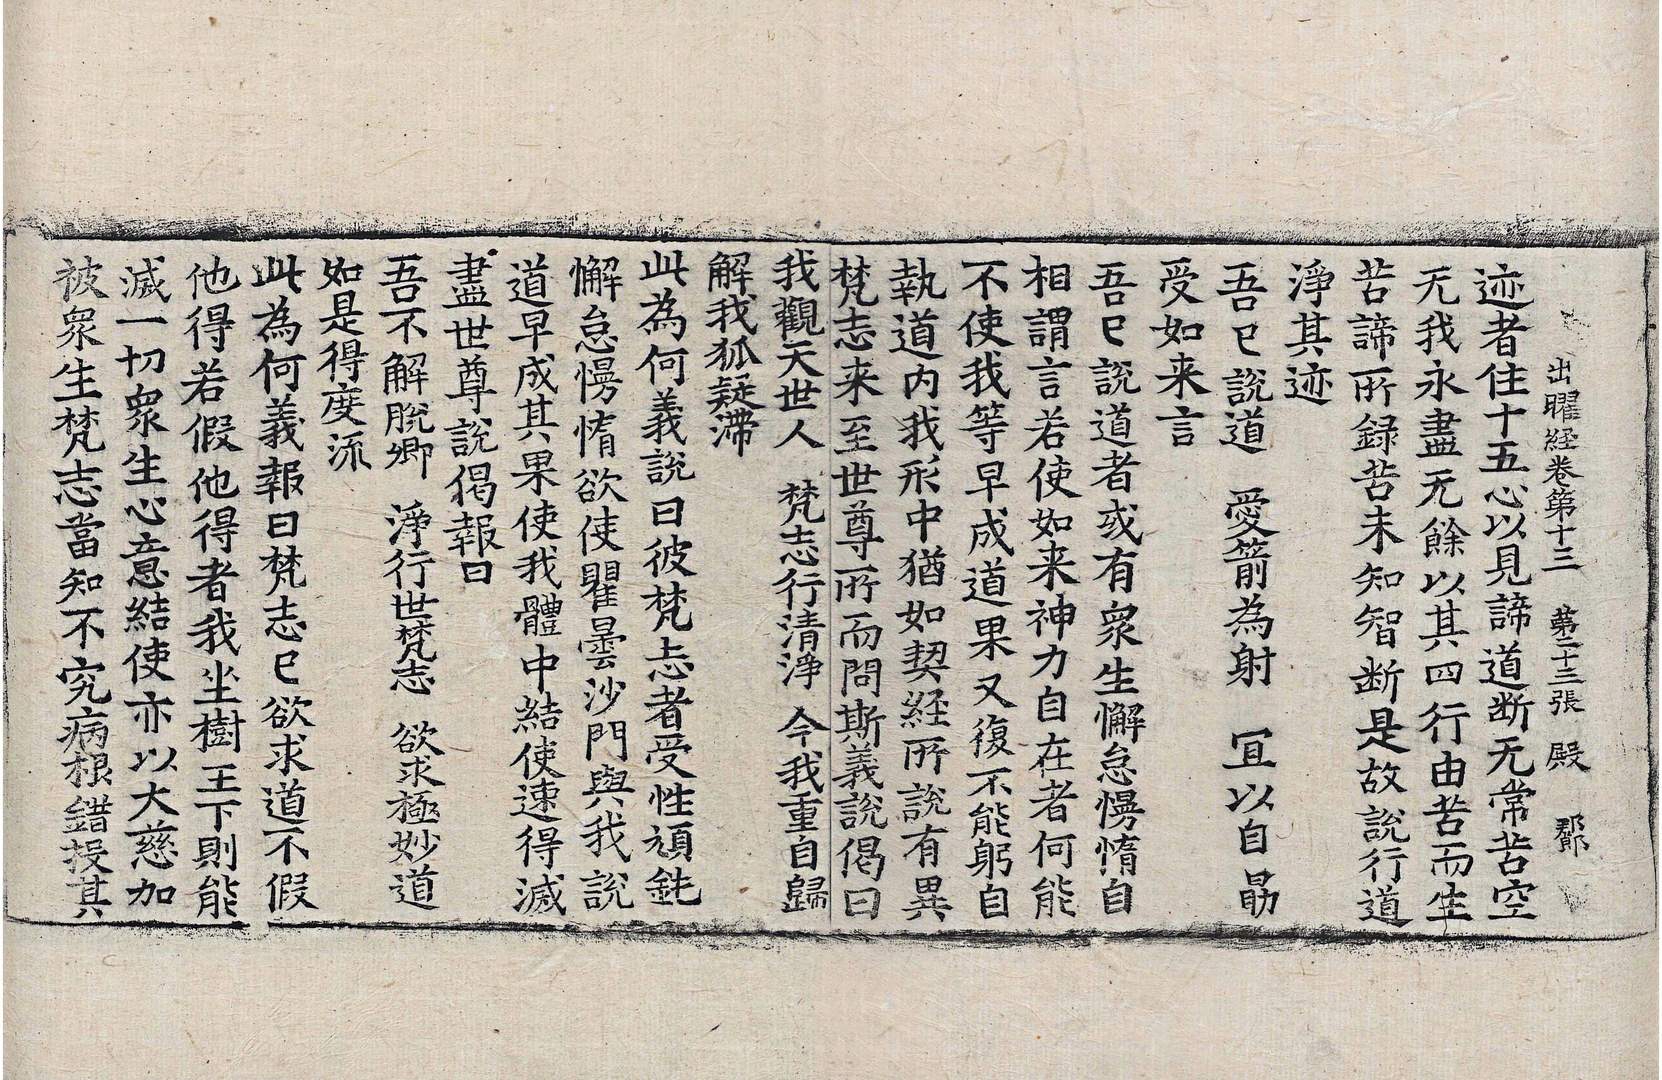 出曜経卷第十三 第二十三張 殿 鄣
迹者住十五心以見諦道断无常苦空
无我永盡无餘以其四行由苦而生
苦諦所録苦未知智断是故說行道
淨其迹
吾已說道 愛箭為射 冝以自勗
受如来言
吾已說道者或有衆生懈怠慢惰自
相謂言若使如来神力自在者何能
不使我等早成道果又復不能躬自
執道内我形中猶如契経所說有異
梵志来至世尊所而問斯義說偈曰
我觀天世人 梵志行清淨 今我重自歸
解我狐疑滯
此為何義說曰彼梵志者受性頑鈍
懈怠慢惰欲使瞿曇沙門與我說
道早成其果使我體中結使速得滅
盡世尊說偈報曰
吾不解脫卿 淨行世梵志 欲求極妙道
如是得度流
此為何義報曰梵志已欲求道不假
他得若假他得者我坐樹王下則能
滅一切衆生心意結使亦以大慈加
被衆生梵志當知不究病根錯投其